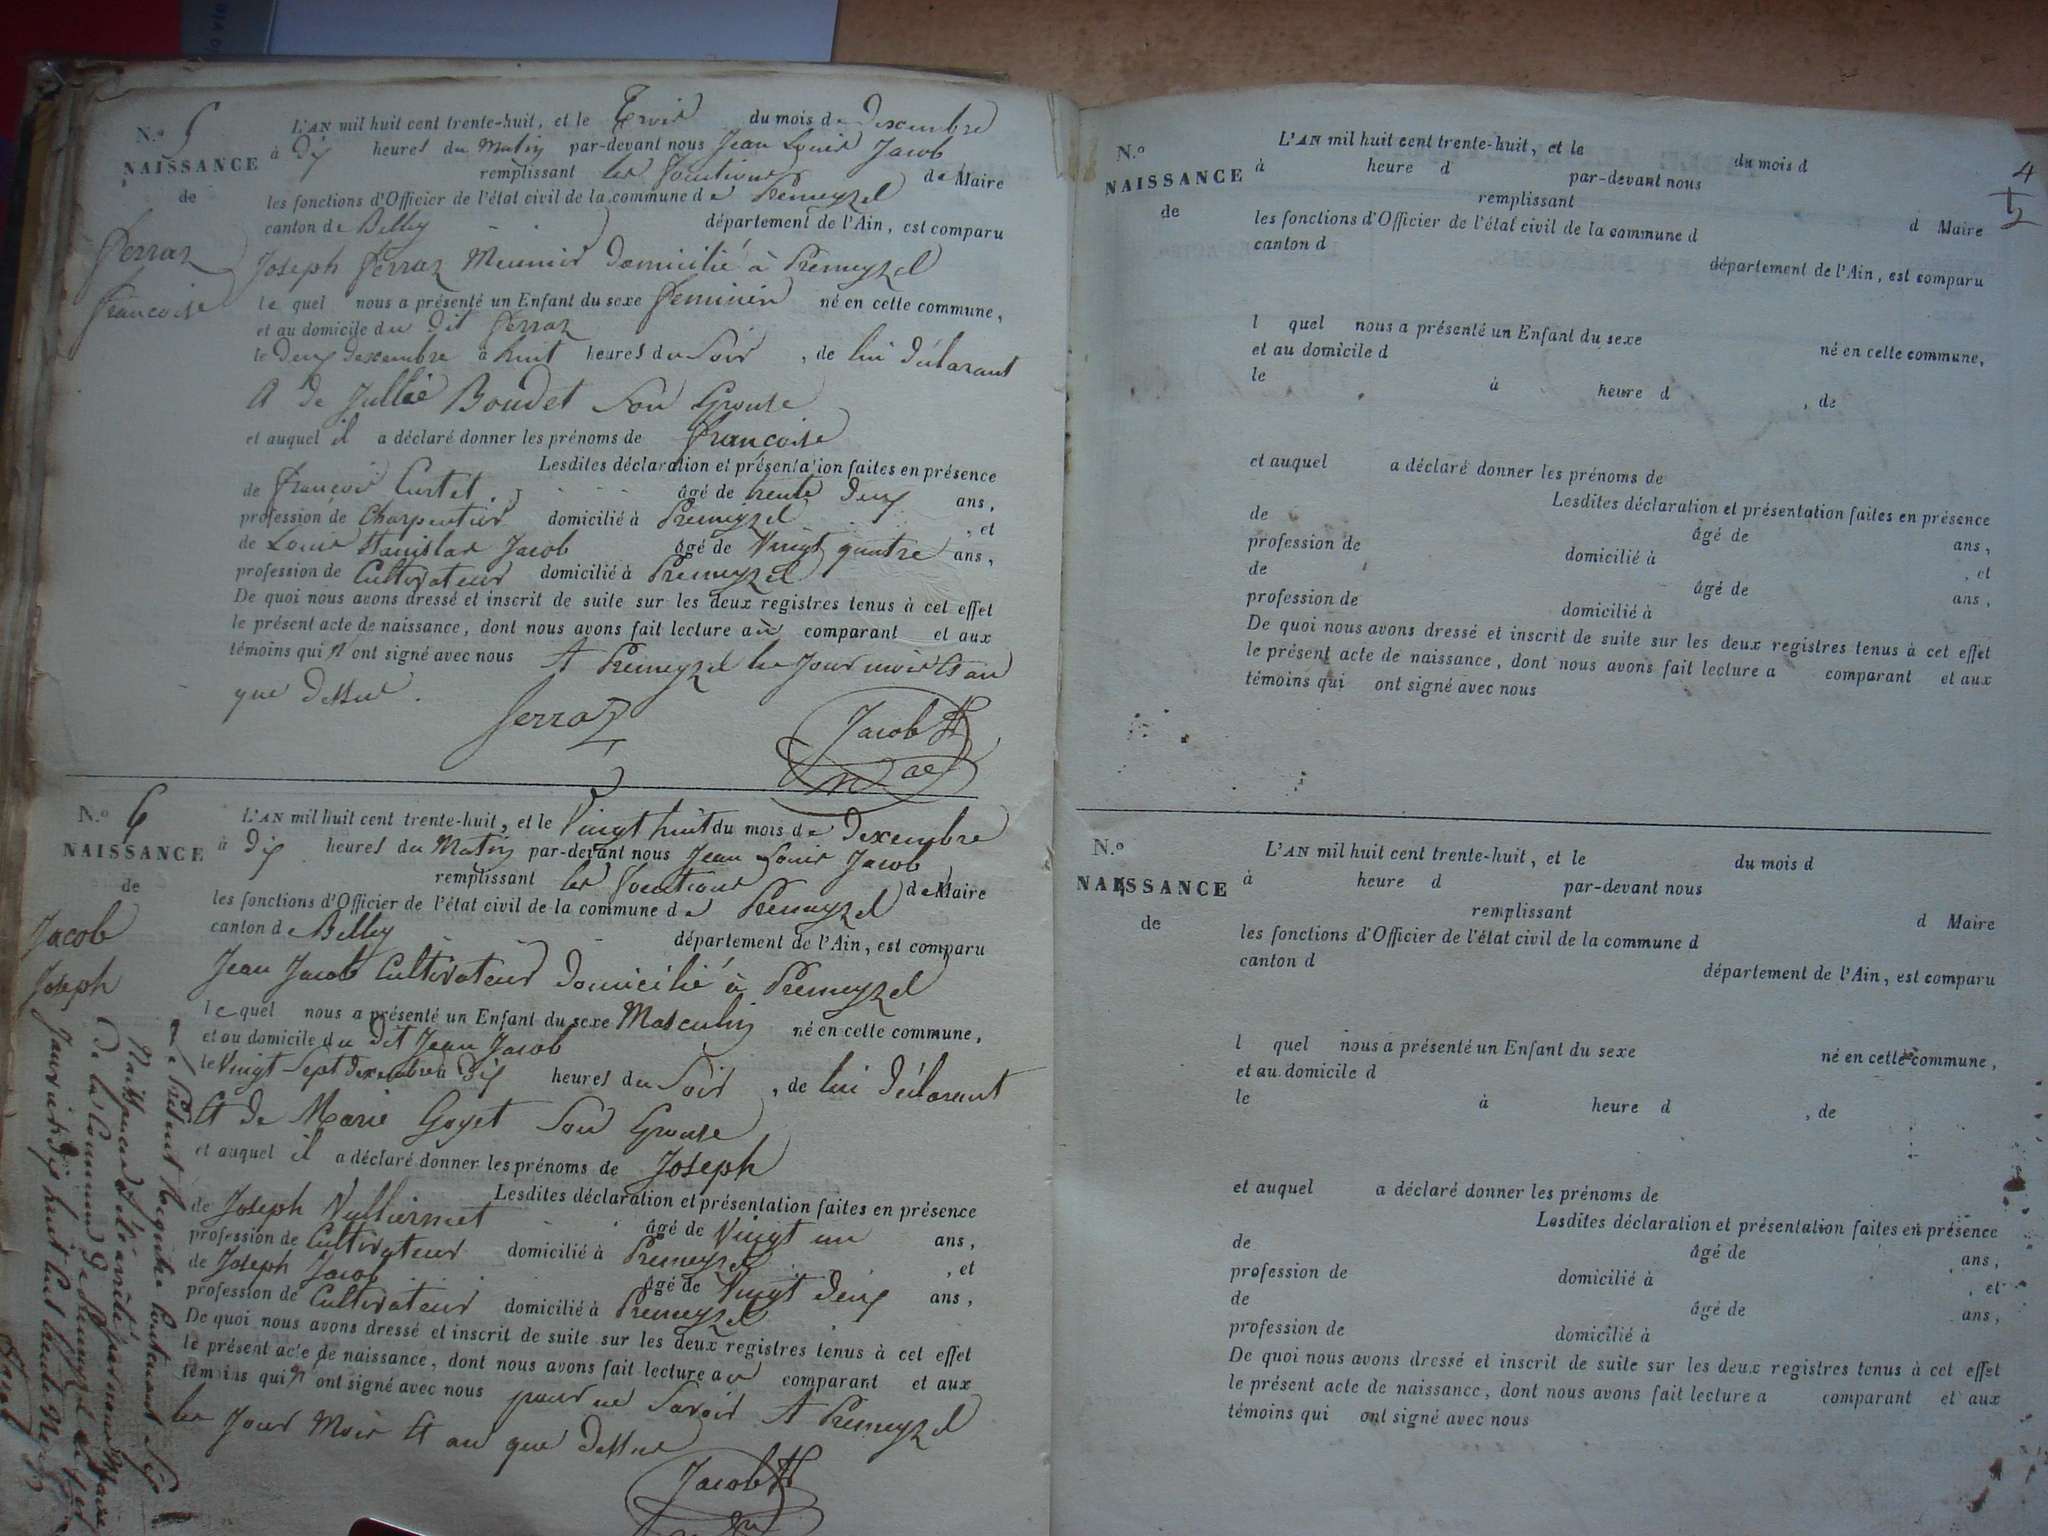 N.o 5
NAISSANCE
de
Ferraz
françoise
L'AN mil huit cent trente-huit, et le Trois du mois de dexembre
à dix heures du Matin par-devant nous Jean Louis Jacob
remplissant les fonctions de Maire
les fonctions d'Officier de l'état civil de la commune de Premeyzel
canton de Belley département de l'Ain, est comparu
Joseph ferraz Meunier domicilié à Premeyzel
le quel nous a présenté un Enfant du sexe feminin né en cette commune,
et au domicile du dit ferraz
le deux dexembre à huit heures du Soir, de lui déclarant
et de Jullie Boudet Son Epouse
et auquel il a déclaré donner les prénoms de françoise
Lesdites déclaration et présentation faites en présence
de françois Curtet âgé de trente deux ans,
profession de Charpentier domicilié à Premeyzel, et
de Louis Stanislas Jacob âgé de Vingt quatre ans,
profession de Cultivateur domicilié à Premeyzel
De quoi nous avons dressé et inscrit de suite sur les deux registres tenus à cet effet
le présent acte de naissance, dont nous avons fait lecture au comparant et aux
témoins qui n'ont signé avec nous A Premeyzel les Jour mois et an
que dessus.
ferraz
Jacob
N.o 6
NAISSANCE
de
Jacob
Joseph
L'AN mil huit cent trente-huit, et le Vingt huit du mois de dexembre
à dix heures du Matin par-devant nous Jean Louis Jacob
remplissant les fonctions de Maire
les fonctions d'Officier de l'état civil de la commune de Premeyzel
canton de Belley département de l'Ain, est comparu
Jean Jacob Cultivateur domicilié à Premeyzel
le quel nous a présenté un Enfant du sexe Masculin né en cette commune,
et au domicile du dit Jean Jacob
le Vingt Sept dexembre à dix heures du Soir, de lui déclarant
et de Marie Goyet Son Epouse
et auquel il a déclaré donner les prénoms de Joseph
Lesdites déclaration et présentation faites en présence
de Joseph Vulliermet âgé de Vingt un ans,
profession de Cultivateur domicilié à Premeyzel, et
de Joseph Jacob âgé de Vingt deux ans,
profession de Cultivateur domicilié à Premeyzel
De quoi nous avons dressé et inscrit de suite sur les deux registres tenus à cet effet
le présent acte de naissance, dont nous avons fait lecture au comparant et aux
témoins qui n'ont signé avec nous pour ne Savoir A Premeyzel
les Jour Mois et an que dessus
Jacob
Le Présent Registre Contenant Six
Naissances a été arrêté par nous Maire
de la Commune de Premeyzel
Janvier dix huit cent trente Neuf
Jacob
4
N.o
NAISSANCE
de
L'AN mil huit cent trente-huit, et le du mois d
à heure d par-devant nous
remplissant
d Maire
les fonctions d'Officier de l'état civil de la commune d
canton d
département de l'Ain, est comparu
l quel nous a présenté un Enfant du sexe
né en cette commune,
et au domicile d
le à heure d , de
et auquel a déclaré donner les prénoms de
Lesdites déclaration et présentation faites en présence
de âgé de ans,
profession de domicilié à , et
de âgé de ans,
profession de domicilié à
De quoi nous avons dressé et inscrit de suite sur les deux registres tenus à cet effet
le présent acte de naissance, dont nous avons fait lecture a comparant et aux
témoins qui ont signé avec nous
N.o
NAISSANCE
de
L'AN mil huit cent trente-huit, et le du mois d
à heure d par-devant nous
remplissant
d Maire
les fonctions d'Officier de l'état civil de la commune d
canton d
département de l'Ain, est comparu
l quel nous a présenté un Enfant du sexe
né en cette commune,
et au domicile d
le à heure d , de
et auquel a déclaré donner les prénoms de
Lesdites déclaration et présentation faites en présence
de âgé de ans,
profession de domicilié à , et
de âgé de ans,
profession de domicilié à
De quoi nous avons dressé et inscrit de suite sur les deux registres tenus à cet effet
le présent acte de naissance, dont nous avons fait lecture a comparant et aux
témoins qui ont signé avec nous